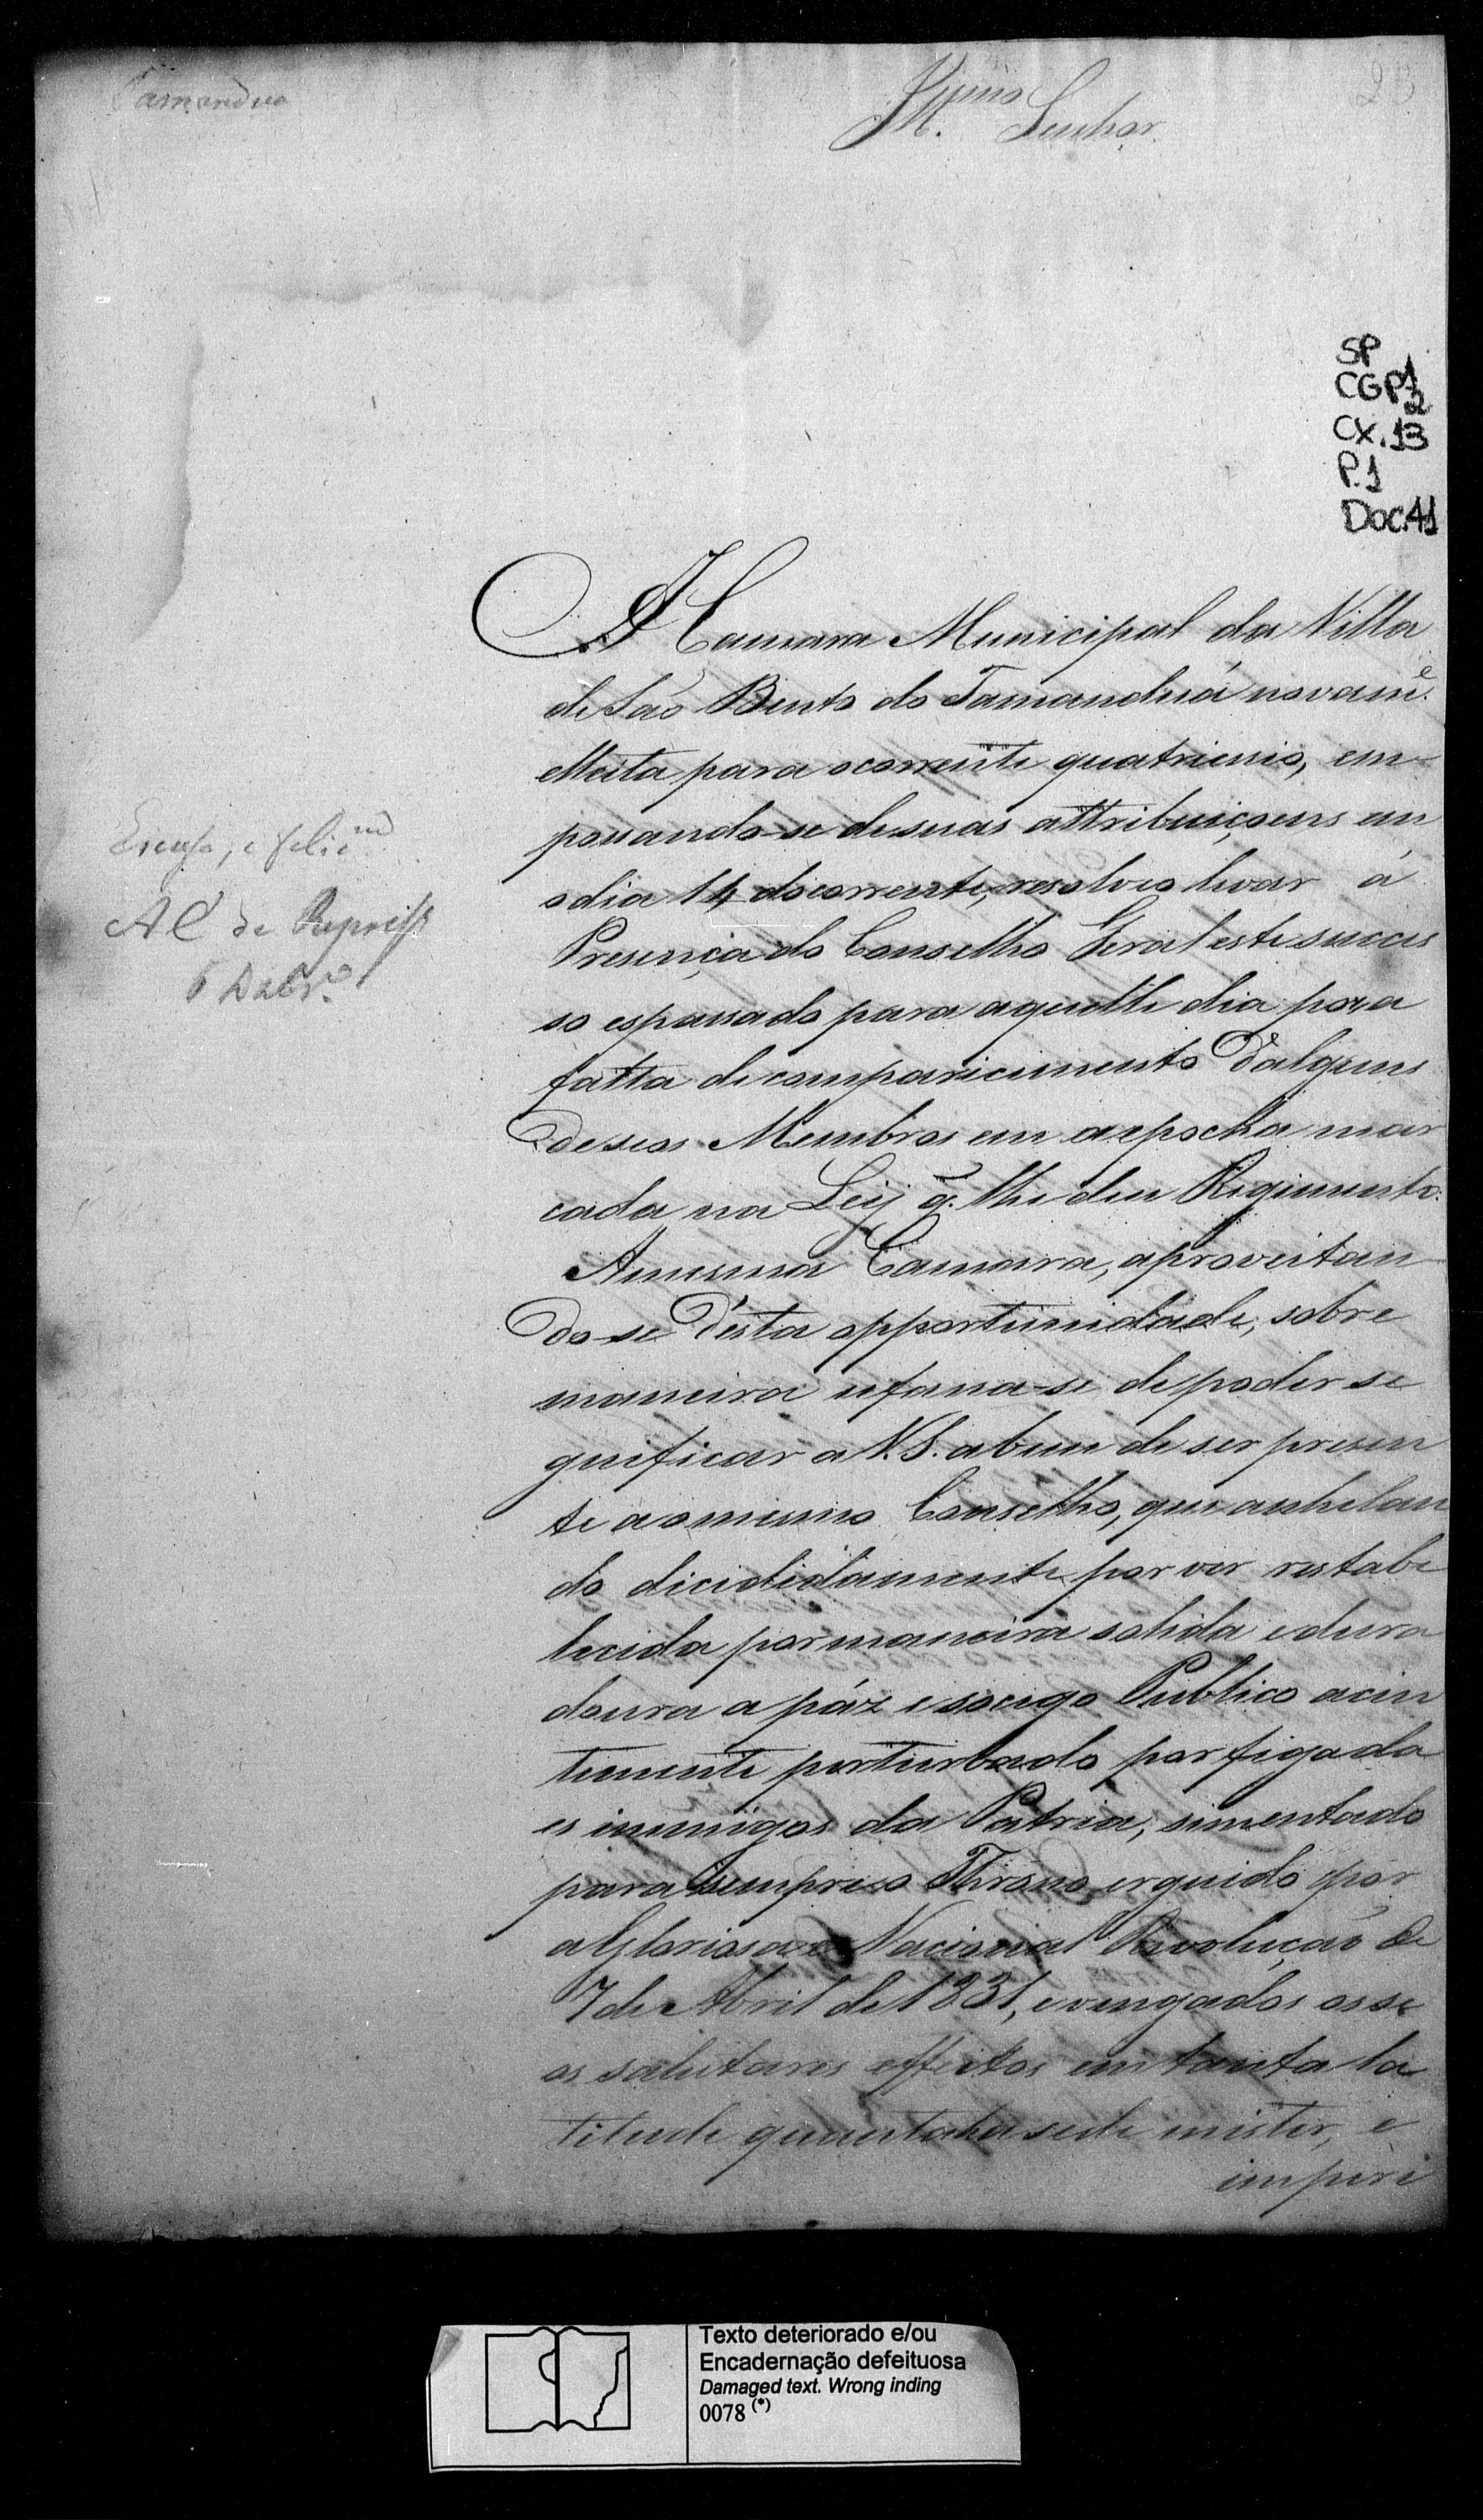 Tamanduá
Illmo Senhor
23
SP
CGP1
2
CX.13
P.1
Doc.41
A Camara Municipal da Villa
de São Bento do Tamanduá novam.e
elleita para ocorrente quatrienio, em-
possando-se desuas attribuiçoens em
odia 14 docorrente, resolveo levar á
Presença do Conselho Geral este succes
so espassado para aquelle dia pora
falta de comparecimento d'alguns
de seos Membros em aepocha mar
cada na Leij q. lhe deu Regimento.
Amesma Camara, aproveitan
do-se d'esta opportunidade, sobre
maneira ufana-se depoder se
gnificar a V.S. abem de ser presen
te aomesmo Conselho, que anhelan
do dicididamente por ver restabe
lecida por maneira solida e dura
doura a páz e socego Publico acin
temente perturbado por figada
es inimigos da Patria, simentado
para sempre o Throno erguido por
aGloriosa e Nacional Revolução de
7 de Abril de 1831, e vengados osse
os salutares effeitos em tanta la
titude quanta hasede mister, e
imperi
AC de Represt
6 Dezbr.o
Texto deteriorado e/ou
Encadernação defeituosa
Damaged text. Wrong inding
0078 (*)